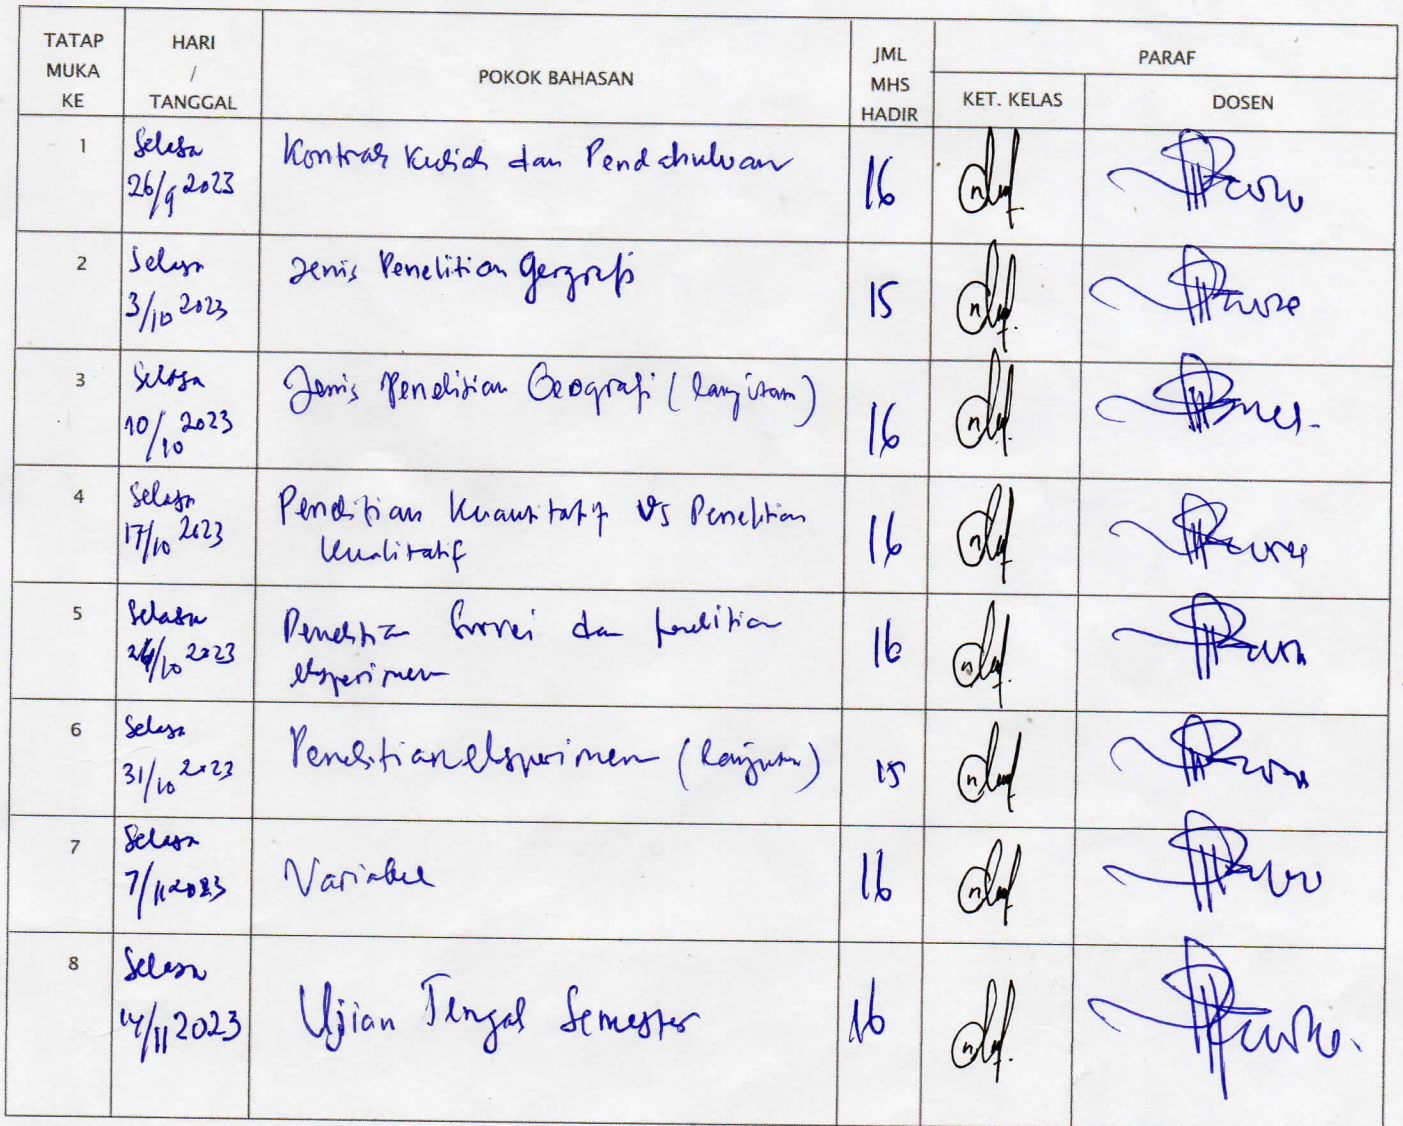 TATAP MUKA KE
HARI / TANGGAL
POKOK BAHASAN
JML MHS HADIR
PARAF
KET. KELAS
DOSEN
1
Selasa
26/9 2023
Kontrak Kuliah dan Pendahuluan
16
2
Selasa
3/10 2023
Jenis Penelitian Geografi
15
3
Selasa
10/10 2023
Jenis Penelitian Geografi (lanjutan)
16
4
Selasa
17/10 2023
Penelitian Kuantitatif vs Penelitian
Kualitatif
16
5
Selasa
24/10 2023
Penelitian Survei dan penelitian
eksperimen
16
6
Selasa
31/10 2023
Penelitian eksperimen (lanjutan)
15
7
Selasa
7/11 2023
Variabel
16
8
Selasa
14/11 2023
Ujian Tengah Semester
16